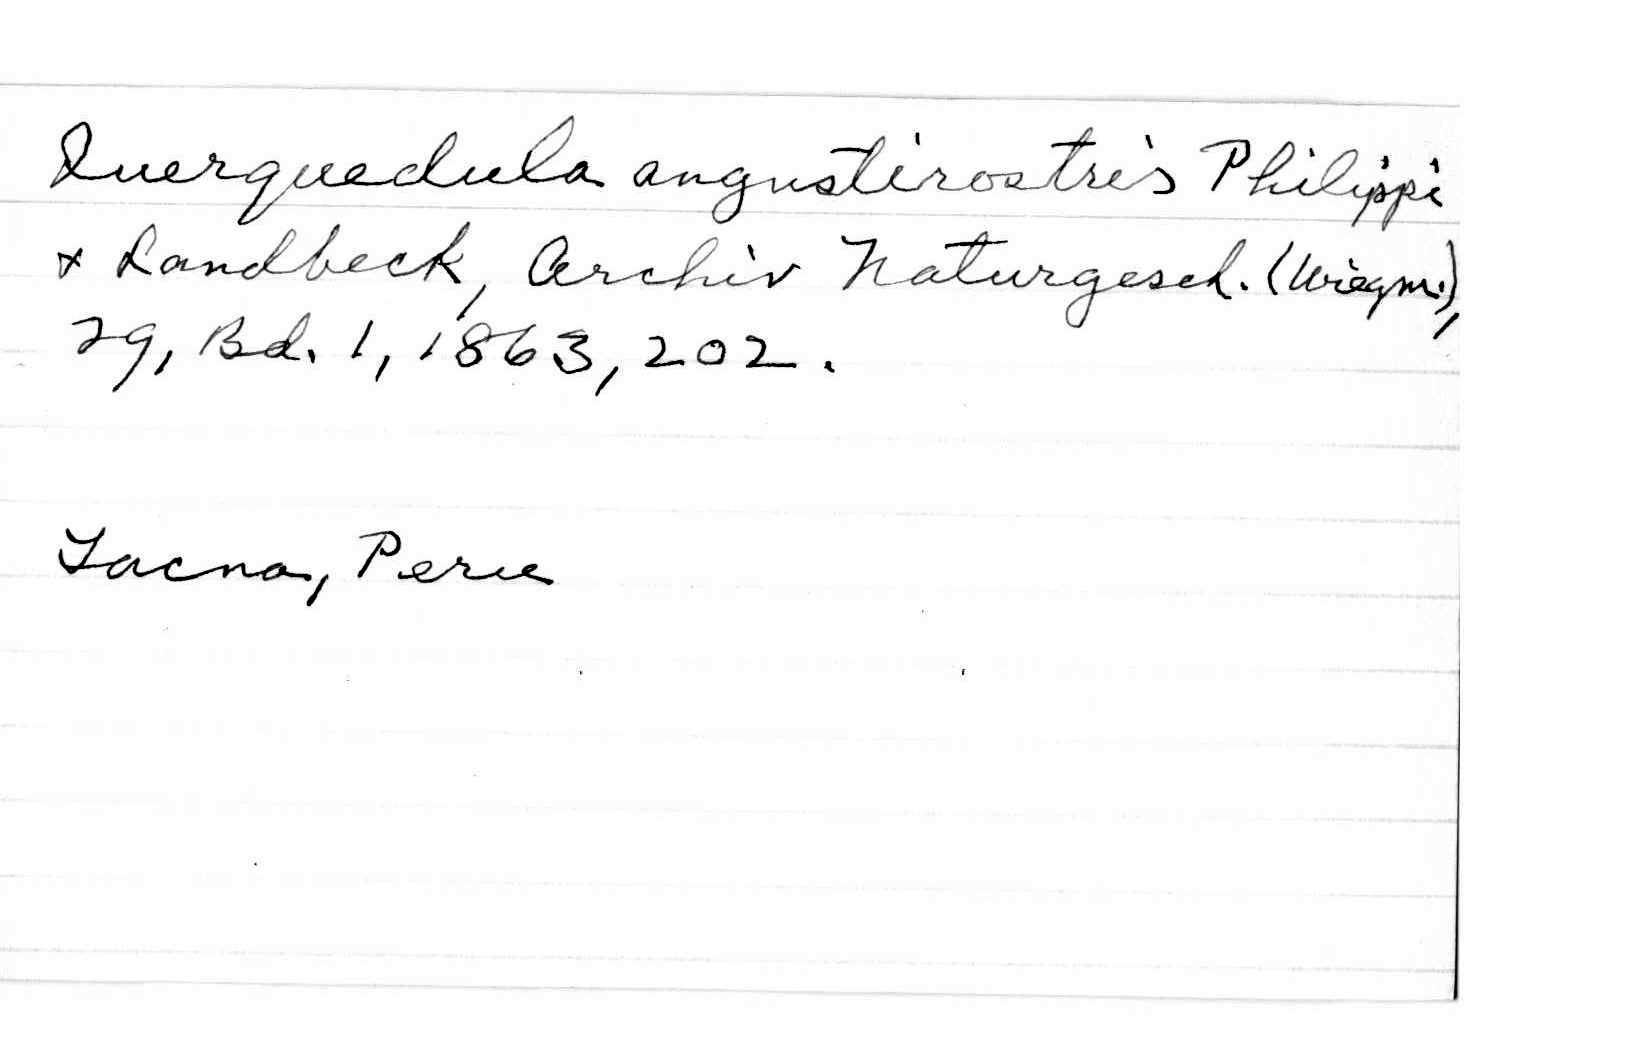 Querquedula angustirostris Philippi
& Landbeck, Archiv Naturgesch. (Wiegm.),
29, Bd. 1, 1863, 202.
Tacna, Peru